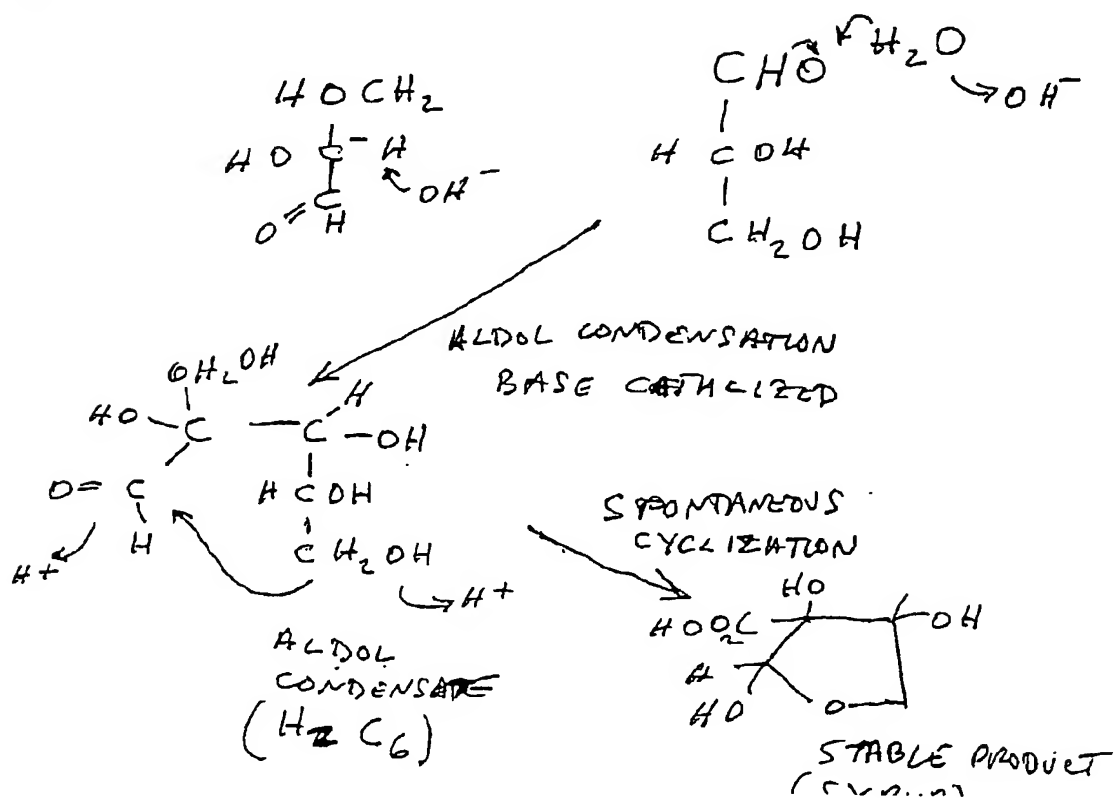 HOCH₂
HO C⁻ H
O=C
H
OH⁻
CHO H₂O
OH⁻
H C OH
CH₂OH
ALDOL CONDENSATION
BASE CATALIZED
OH₂OH
HO C C H
OH
O= C H C OH
H
H+ CH₂OH
H+
ALDOL
CONDENSATE
C₆)
SPONTANEOUS
CYCLIZATION
HO
OH
H
HO O
STABLE PRODUCT